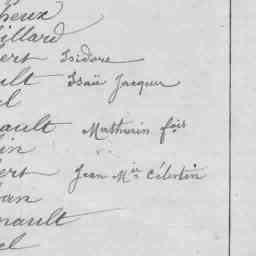 heux
illard
ert Isidore
ult Isaïe Jacques
el
ault Mathurin fçois
in
ert Jean Mie Célestin
an
nault
el